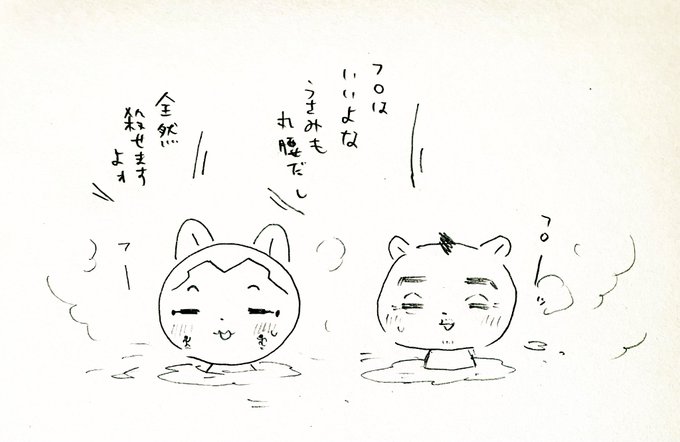 フロは
いいよな
うさみも
れ腰だし
全然
殺せます
よォ
フロー
フー